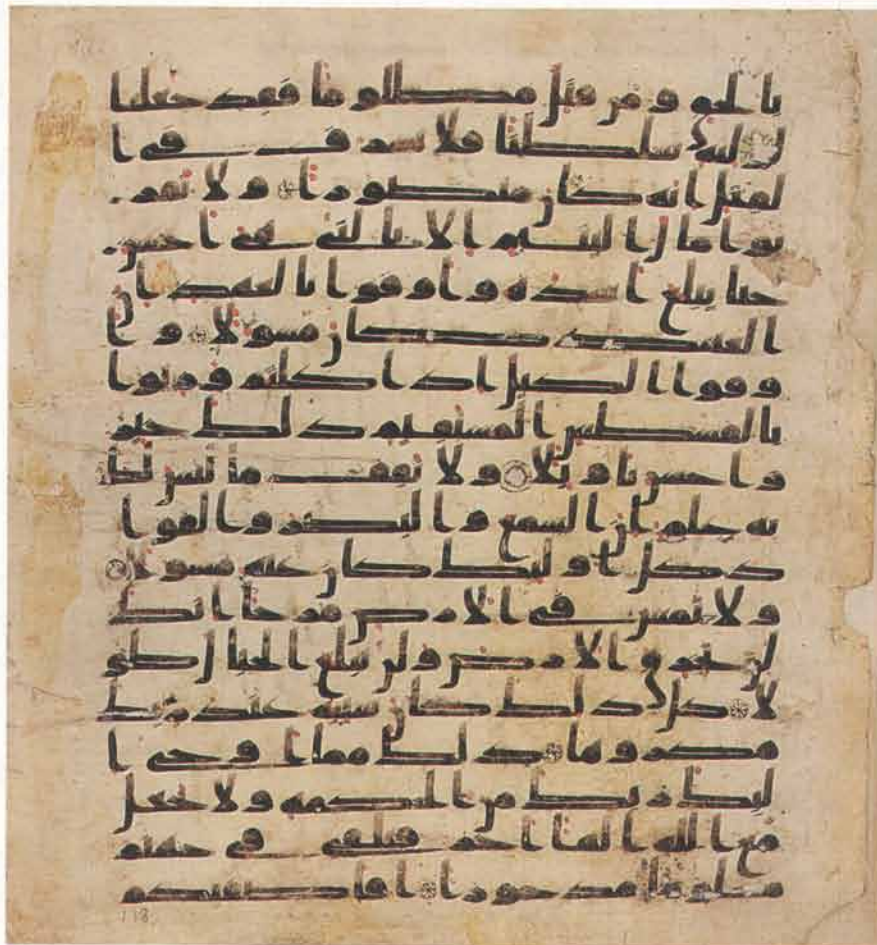 بالحق ومن قتل مظلوما فقد جعلنا
لوليه سلطنا فلا يسرف في ا
لقتل انه كان منصورا ولا تقر
بوا مال اليتيم الا بالتي هي احسن
حتا يبلغ اشده واوفوا بالعهد ان
العهد كان مسولا وا
وفوا الكيل اذا كلتم وزنوا
بالقسطس المستقيم ذلك خير
واحسن تاويلا ولا تقف ما ليس لك
به علم ان السمع والبصر والفوا
د كل اوليك كان عنه مسولا
ولا تمش في الارض مرحا انك
لن تخرق الارض ولن تبلغ الجبال طو
لا كل ذلك كان سيه عند ربك
مكروها ذلك مما اوحى ا
ليك ربك من الحكمه ولا تجعل
مع الله الها اخر فتلقى في جهنم
ملوما مدحورا افاصفيكم
118